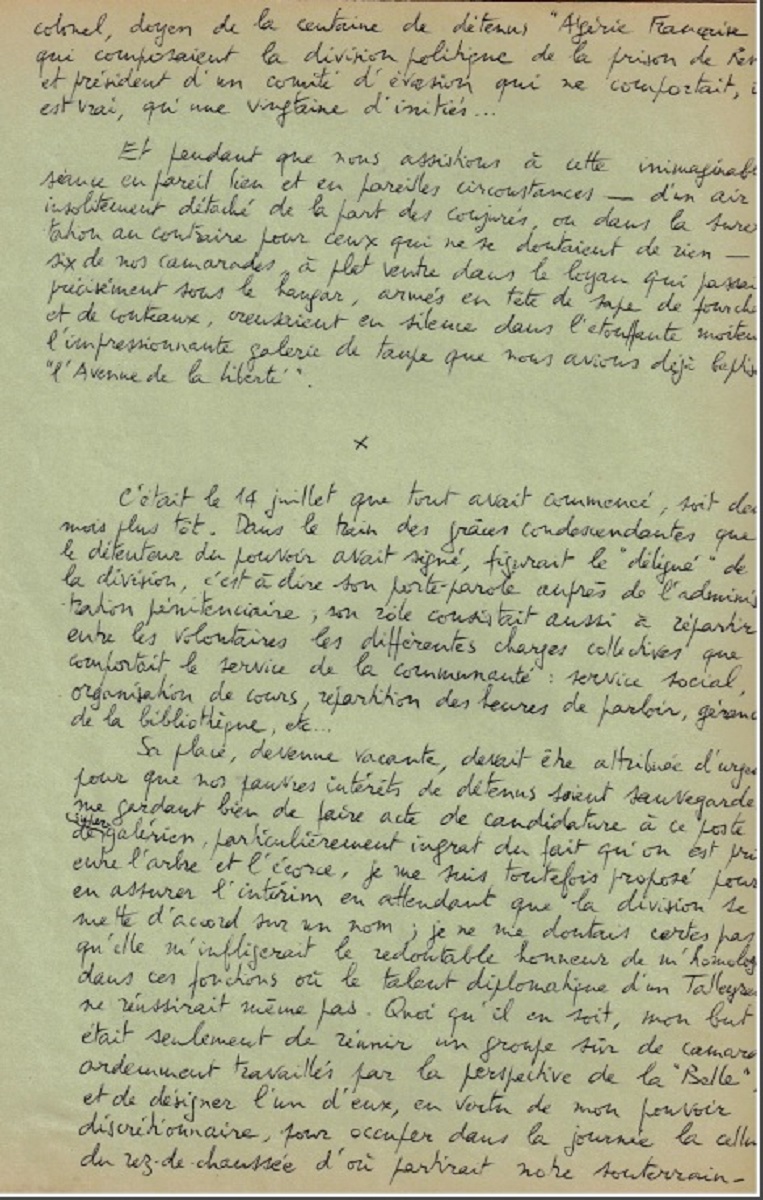 colonel, doyen de la centaine de détenus "Algérie Française
qui composaient la division politique de la prison de
et président d'un comité d'évasion qui ne comportait, i
est vrai, qu'une vingtaine d'initiés...
Et pendant que nous assistions à cette inimaginab
séance en pareil lieu et en pareilles circonstances — d'un air
insolitement détaché de la part des conjurés, ou dans la sure
tation au contraire pour ceux qui ne se doutaient de rien —
six de nos camarades, à plat ventre dans le boyau qui passai
précisément sous le hangar, armés en tête de sape de fourche
et de couteaux, creusaient en silence dans l'étouffante moiteu
l'impressionnante galerie de taupe que nous avions déjà baptis
"l'Avenue de la liberté".
x
C'était le 14 juillet que tout avait commencé, soit de
mois plus tôt. Dans le train des grâces condescendantes que
le détenteur du pouvoir avait signé, figurait le "délégué" de
la division, c'est à dire son porte-parole auprès de l'adminis
tration pénitenciaire ; son rôle consistait aussi à répartir
entre les volontaires les différentes charges collectives que
comportait le service de la communauté : service social,
organisation de cours, répartition des heures de parloir, géranc
de la bibliothèque, etc...
Sa place, devenue vacante, devait être attribuée d'urge
pour que nos pauvres intérêts de détenus soient sauvegardé
me gardant bien de faire acte de candidature à ce poste
de galérien, particulièrement ingrat du fait qu'on est pri
entre l'arbre et l'écorce, je me suis toutefois proposé pour
en assurer l'intérim en attendant que la division se
mette d'accord sur un nom ; je ne me doutais certes pas
qu'elle m'infligerait le redoutable honneur de m'homolog
dans ces fonctions où le talent diplomatique d'un Talleyra
ne réussirait même pas. Quoi qu'il en soit, mon but
était seulement de réunir un groupe sûr de camara
ardemment travaillés par la perspective de la "Belle",
et de désigner l'un d'eux, en vertu de mon pouvoir
discrétionnaire, pour occuper dans la journée la cellu
du rez-de-chaussée d'où partirait notre souterrain-